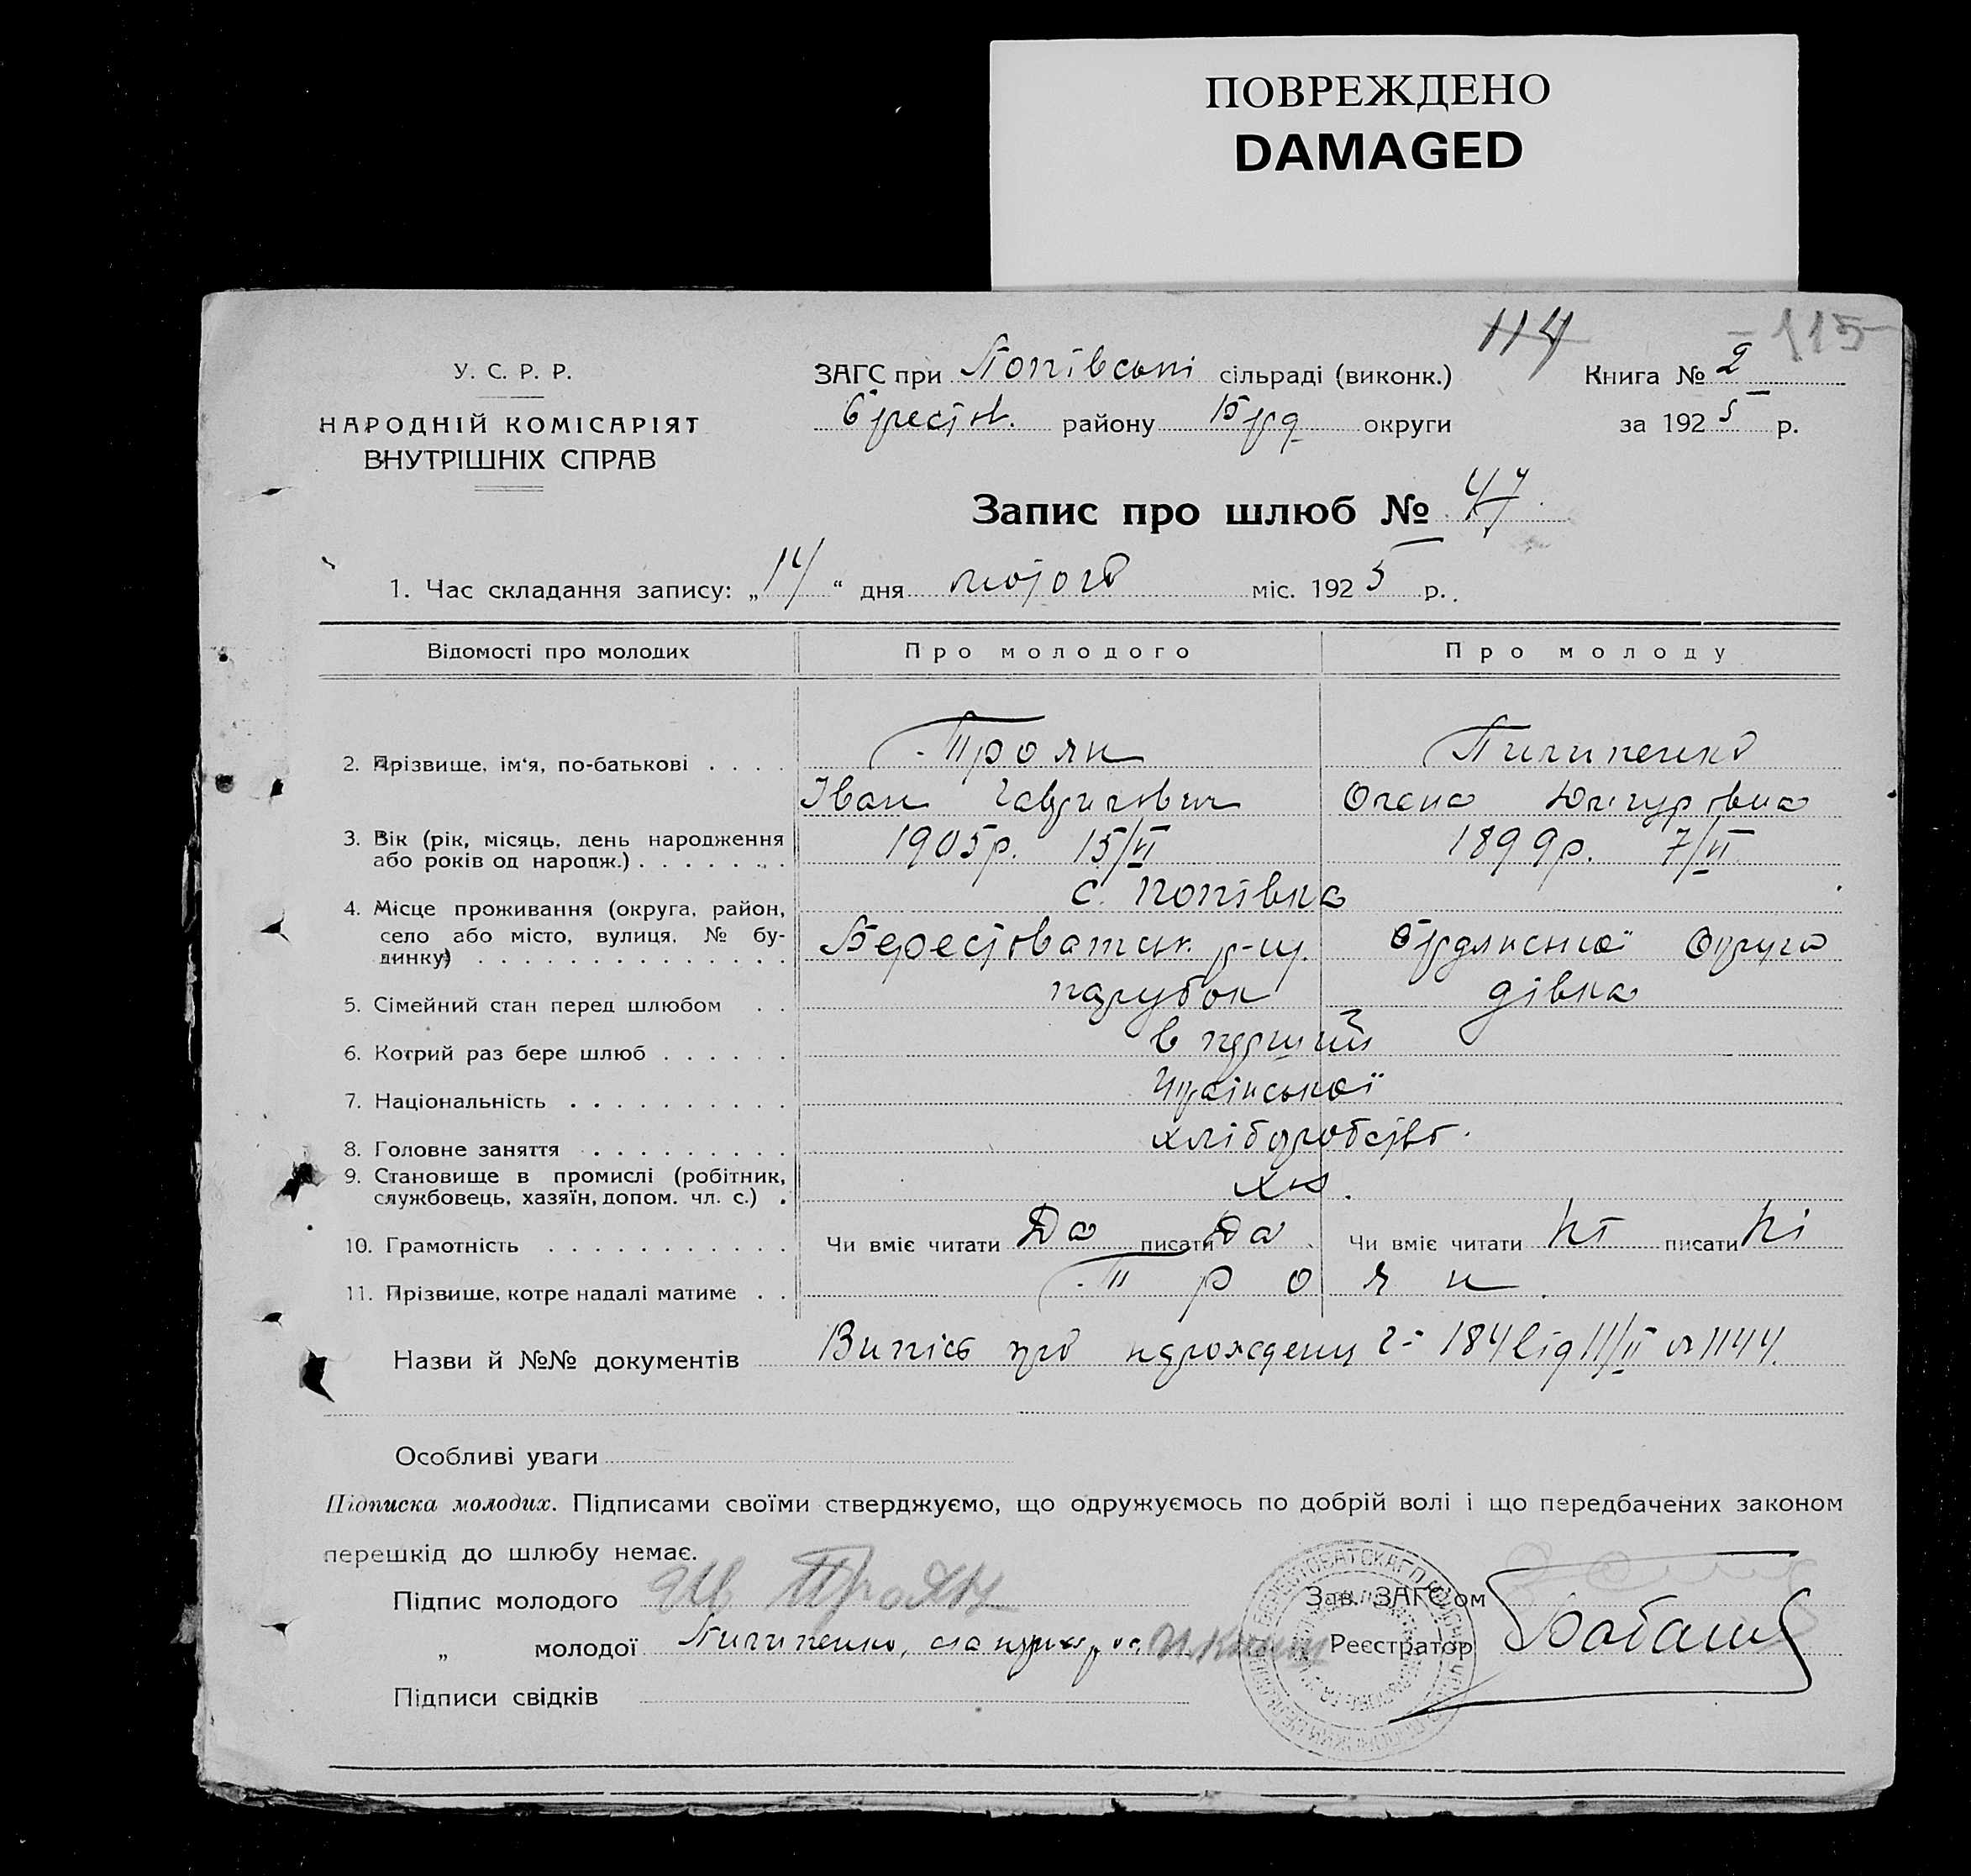 ПОВРЕЖДЕНО
DAMAGED
114 115
У. С. Р. Р.
НАРОДНІЙ КОМІСАРІЯТ
ВНУТРІШНІХ СПРАВ
ЗАГС при Попівські сільраді (виконк.)
Берестов. району Берд округи
Книга № 2
за 1925 р.
Запис про шлюб № 47
1. Час складання запису: „14“ дня лютого міс. 1925 р.
Відомості про молодих Про молодого Про молоду
2. Прізвище, ім'я, по-батькові . . . . Троян Пилипенко
Іван Гаврилович Олена
3. Вік (рік, місяць, день народження 1905р. 15/VI 1899р. 7/VI
або років од народж.) . . . . . . .
4. Місце проживання (округа, район, с. Попівка
село або місто, вулиця, № бу-
динку) . . . . . . . . . . . . . . Берестоватськ. р-ну. Бердянської Округи
5. Сімейний стан перед шлюбом . . парубок дівка
6. Котрий раз бере шлюб . . . . . . в перший
7. Національність . . . . . . . . . . Української
8. Головне заняття . . . . . . . . . хліборобство.
9. Становище в промислі (робітник,
службовець, хазяїн, допом. чл. с.) .
10. Грамотність . . . . . . . . . . . Чи вміє читати Да писати Да Чи вміє читати Ні писати Ні
11. Прізвище, котре надалі матиме . . Троян
Назви й №№ документів Випісь про 184 від 11/II 1144.
Особливі уваги
Підписка молодих. Підписами своїми стверджуємо, що одружуємось по добрій волі і що передбачених законом
перешкід до шлюбу немає.
Підпис молодого Ив Троян Зав. ЗАГС'ом
„ молодої Пилипенко, Реєстратор
Підписи свідків